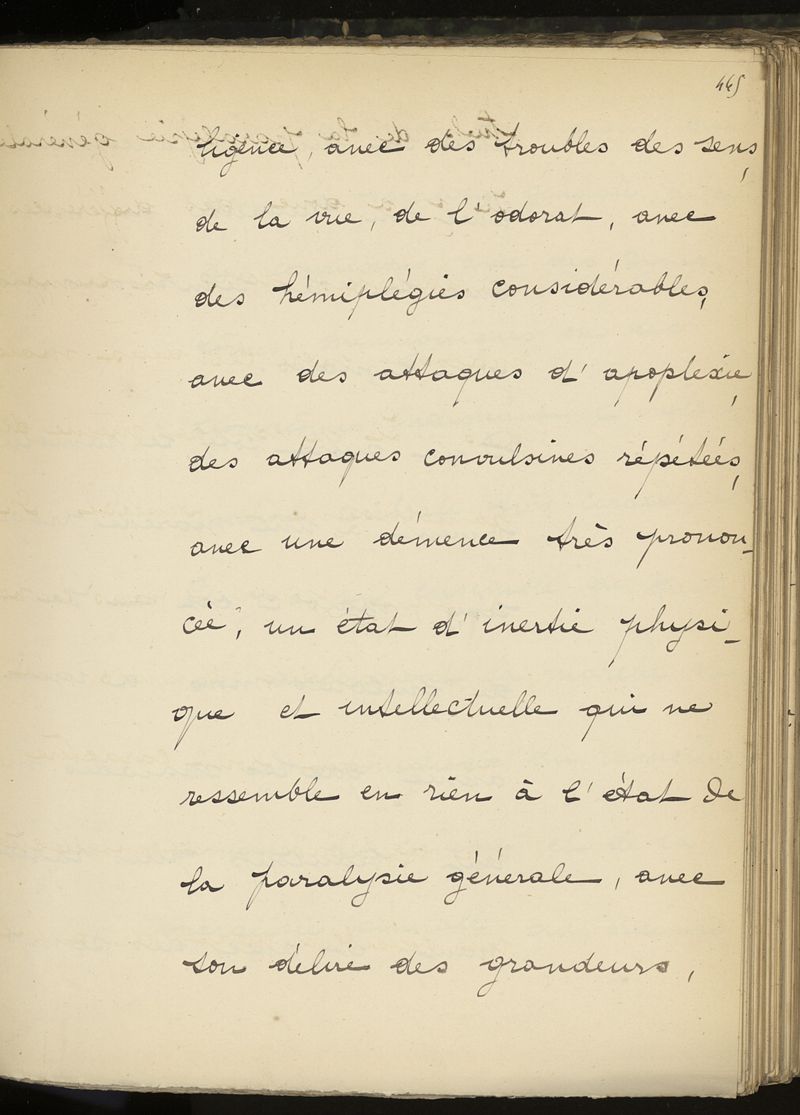 445
ligence, avec des troubles des sens,
de la vue, de l'odorat, avec
des hémiplégies considérables,
avec des attaques d'apoplexie,
des attaques convulsives répétées,
avec une démence très pronon-
cée, un état d'inertie physi-
que et intellectuelle qui ne
ressemble en rien à l'état de
la paralysie générale, avec
son délire des grandeurs,